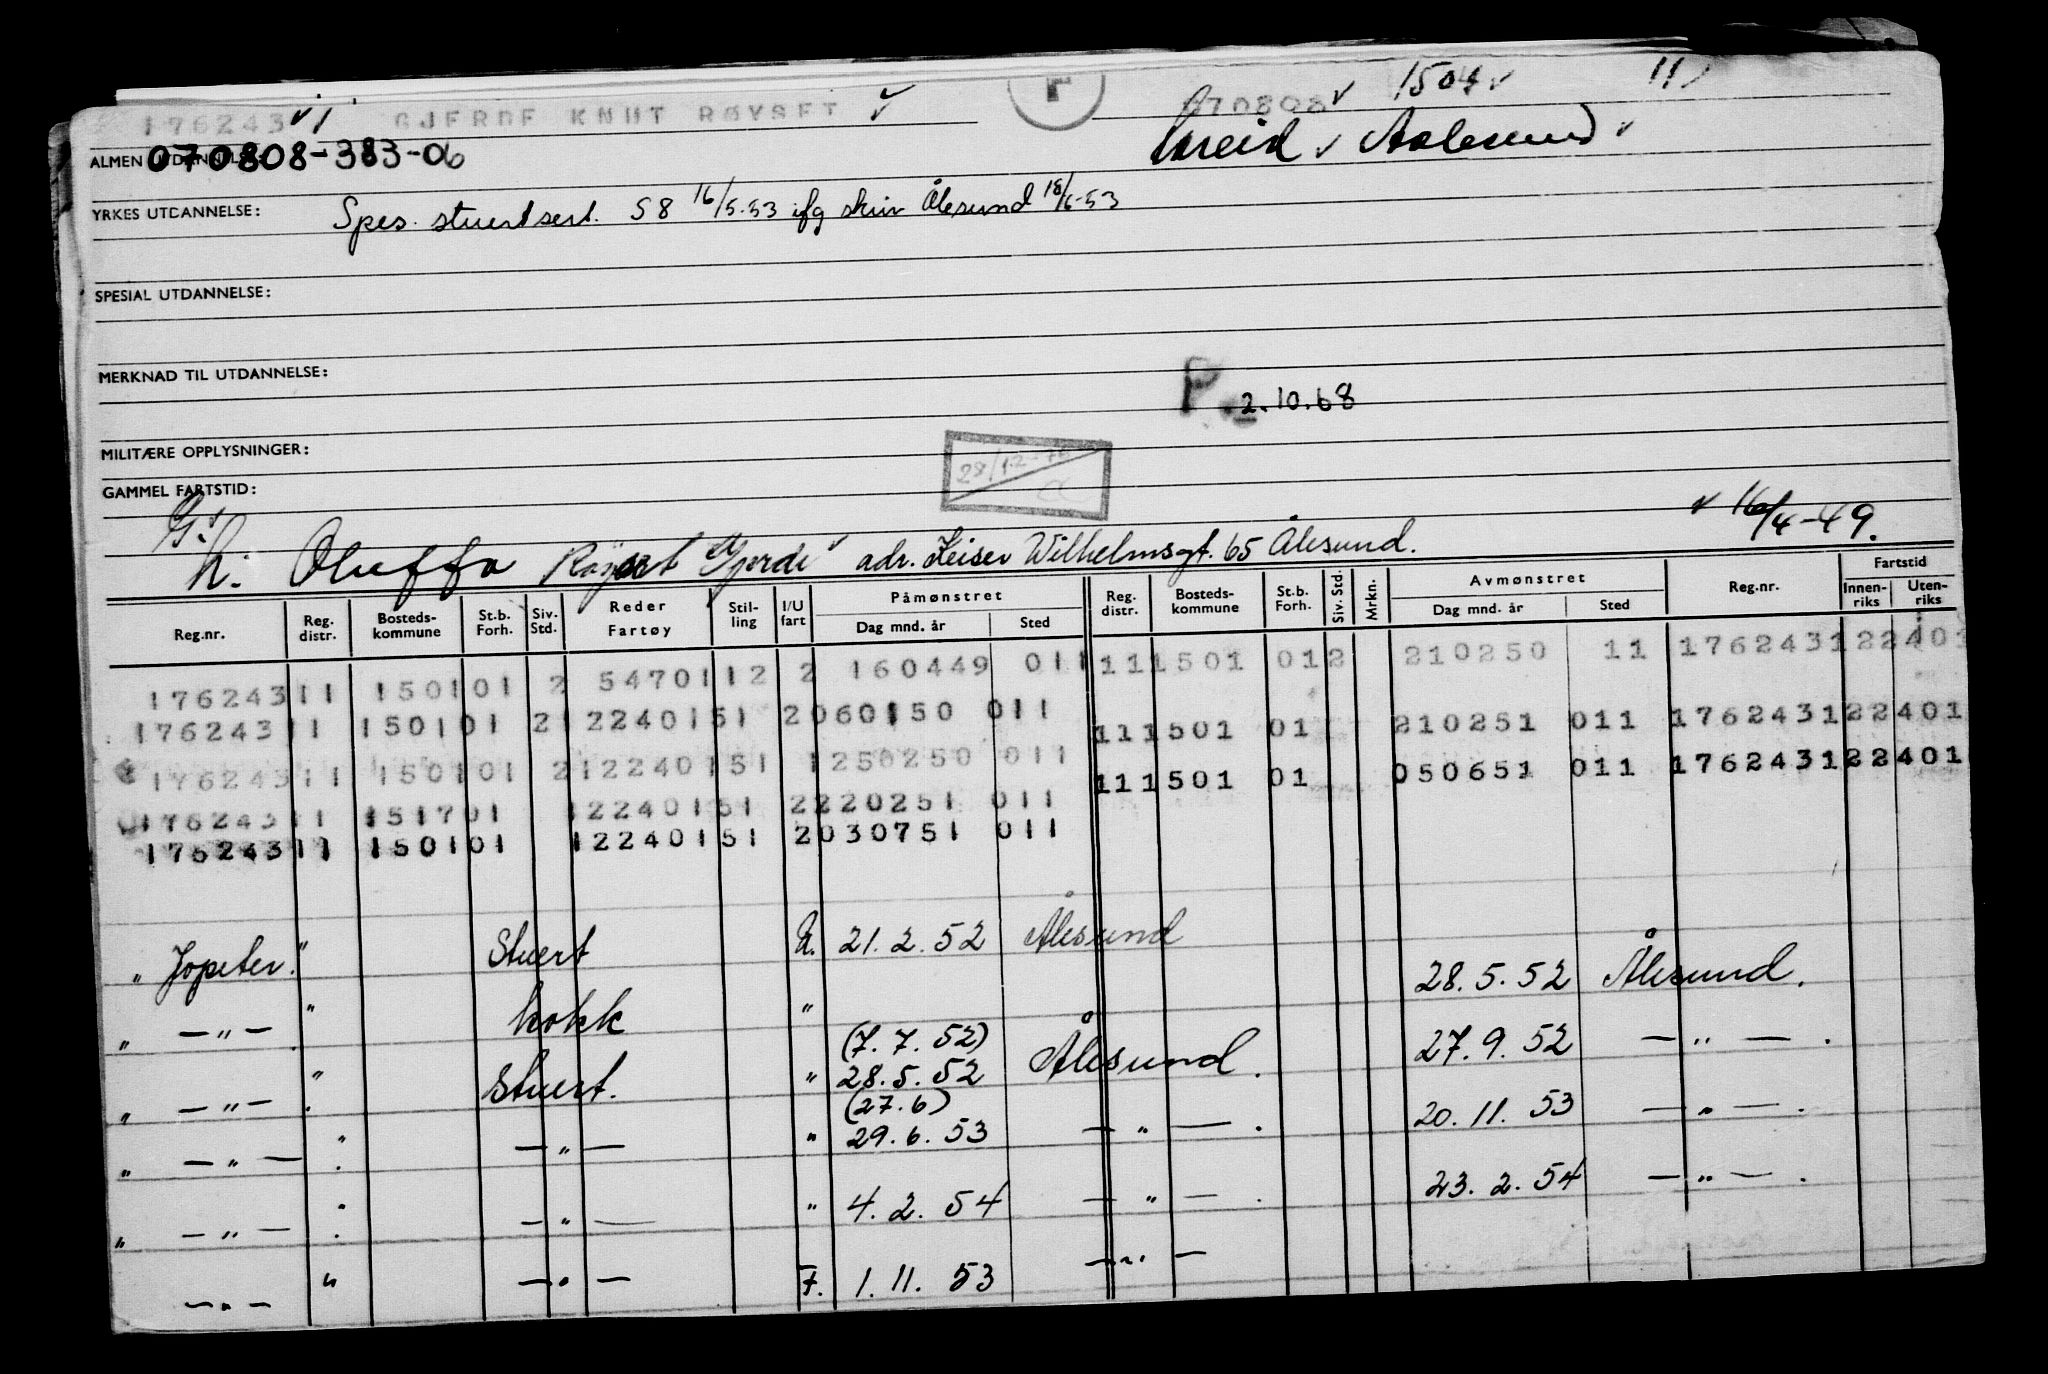 176243 1 GJERDE KNUT RØYSET 070808 1504 11
ALMEN UTDANNELSE: 070808-383-06 Aalesund
YRKES UTDANNELSE: Spes. stuertsert. S8 16/5.53 ifg skriv Ålesund 18/6-53
SPESIAL UTDANNELSE:
MERKNAD TIL UTDANNELSE:
P. 2.10.68
MILITÆRE OPPLYSNINGER:
28/12-76
GAMMEL FARTSTID:
G:
16/4-49.
h: Oluffa Røyset Gjerde adr. Keiser Wilhelmsgt. 65 Ålesund.
Reg.nr. Reg. distr. Bosteds-kommune St.b. Forh. Siv. Std. Reder Fartøy Stil-ling I/U fart Påmønstret Dag mnd. år Sted Reg. distr. Bosteds-kommune St.b. Forh. Siv. Std. Mrkn. Avmønstret Dag mnd. år Sted Reg.nr. Fartstid Innen-riks Uten-riks
176243 11 1501 01 2 54701 12 2 160449 011 11 1501 01 2 210250 11 176243122401
176243 11 1501 01 2 122401 51 2 060150 011 11 1501 01 210251 011 176243122401
176243 11 1501 01 2 122401 51 1 250250 011 11 1501 01 050651 011 176243122401
176243 11 1517 01 122401 51 2 220251 011
176243 11 1501 01 122401 51 2 030751 011
" Jopeter. " Stuert U. 21.2.52 Ålesund
28.5.52 Ålesund.
" — " — " Kokk "
(7.7.52)
" — " — " Stuert. " 28.5.52 Ålesund. 27.9.52 — " — .
(27.6)
" — " — " — " — " 29.6.53 — " — . 20.11.53 — " — .
" — " — " — " — " 4.2.54 — " — . 23.2.54 — " — .
— " — " — " — F. 1.11.53 — " —